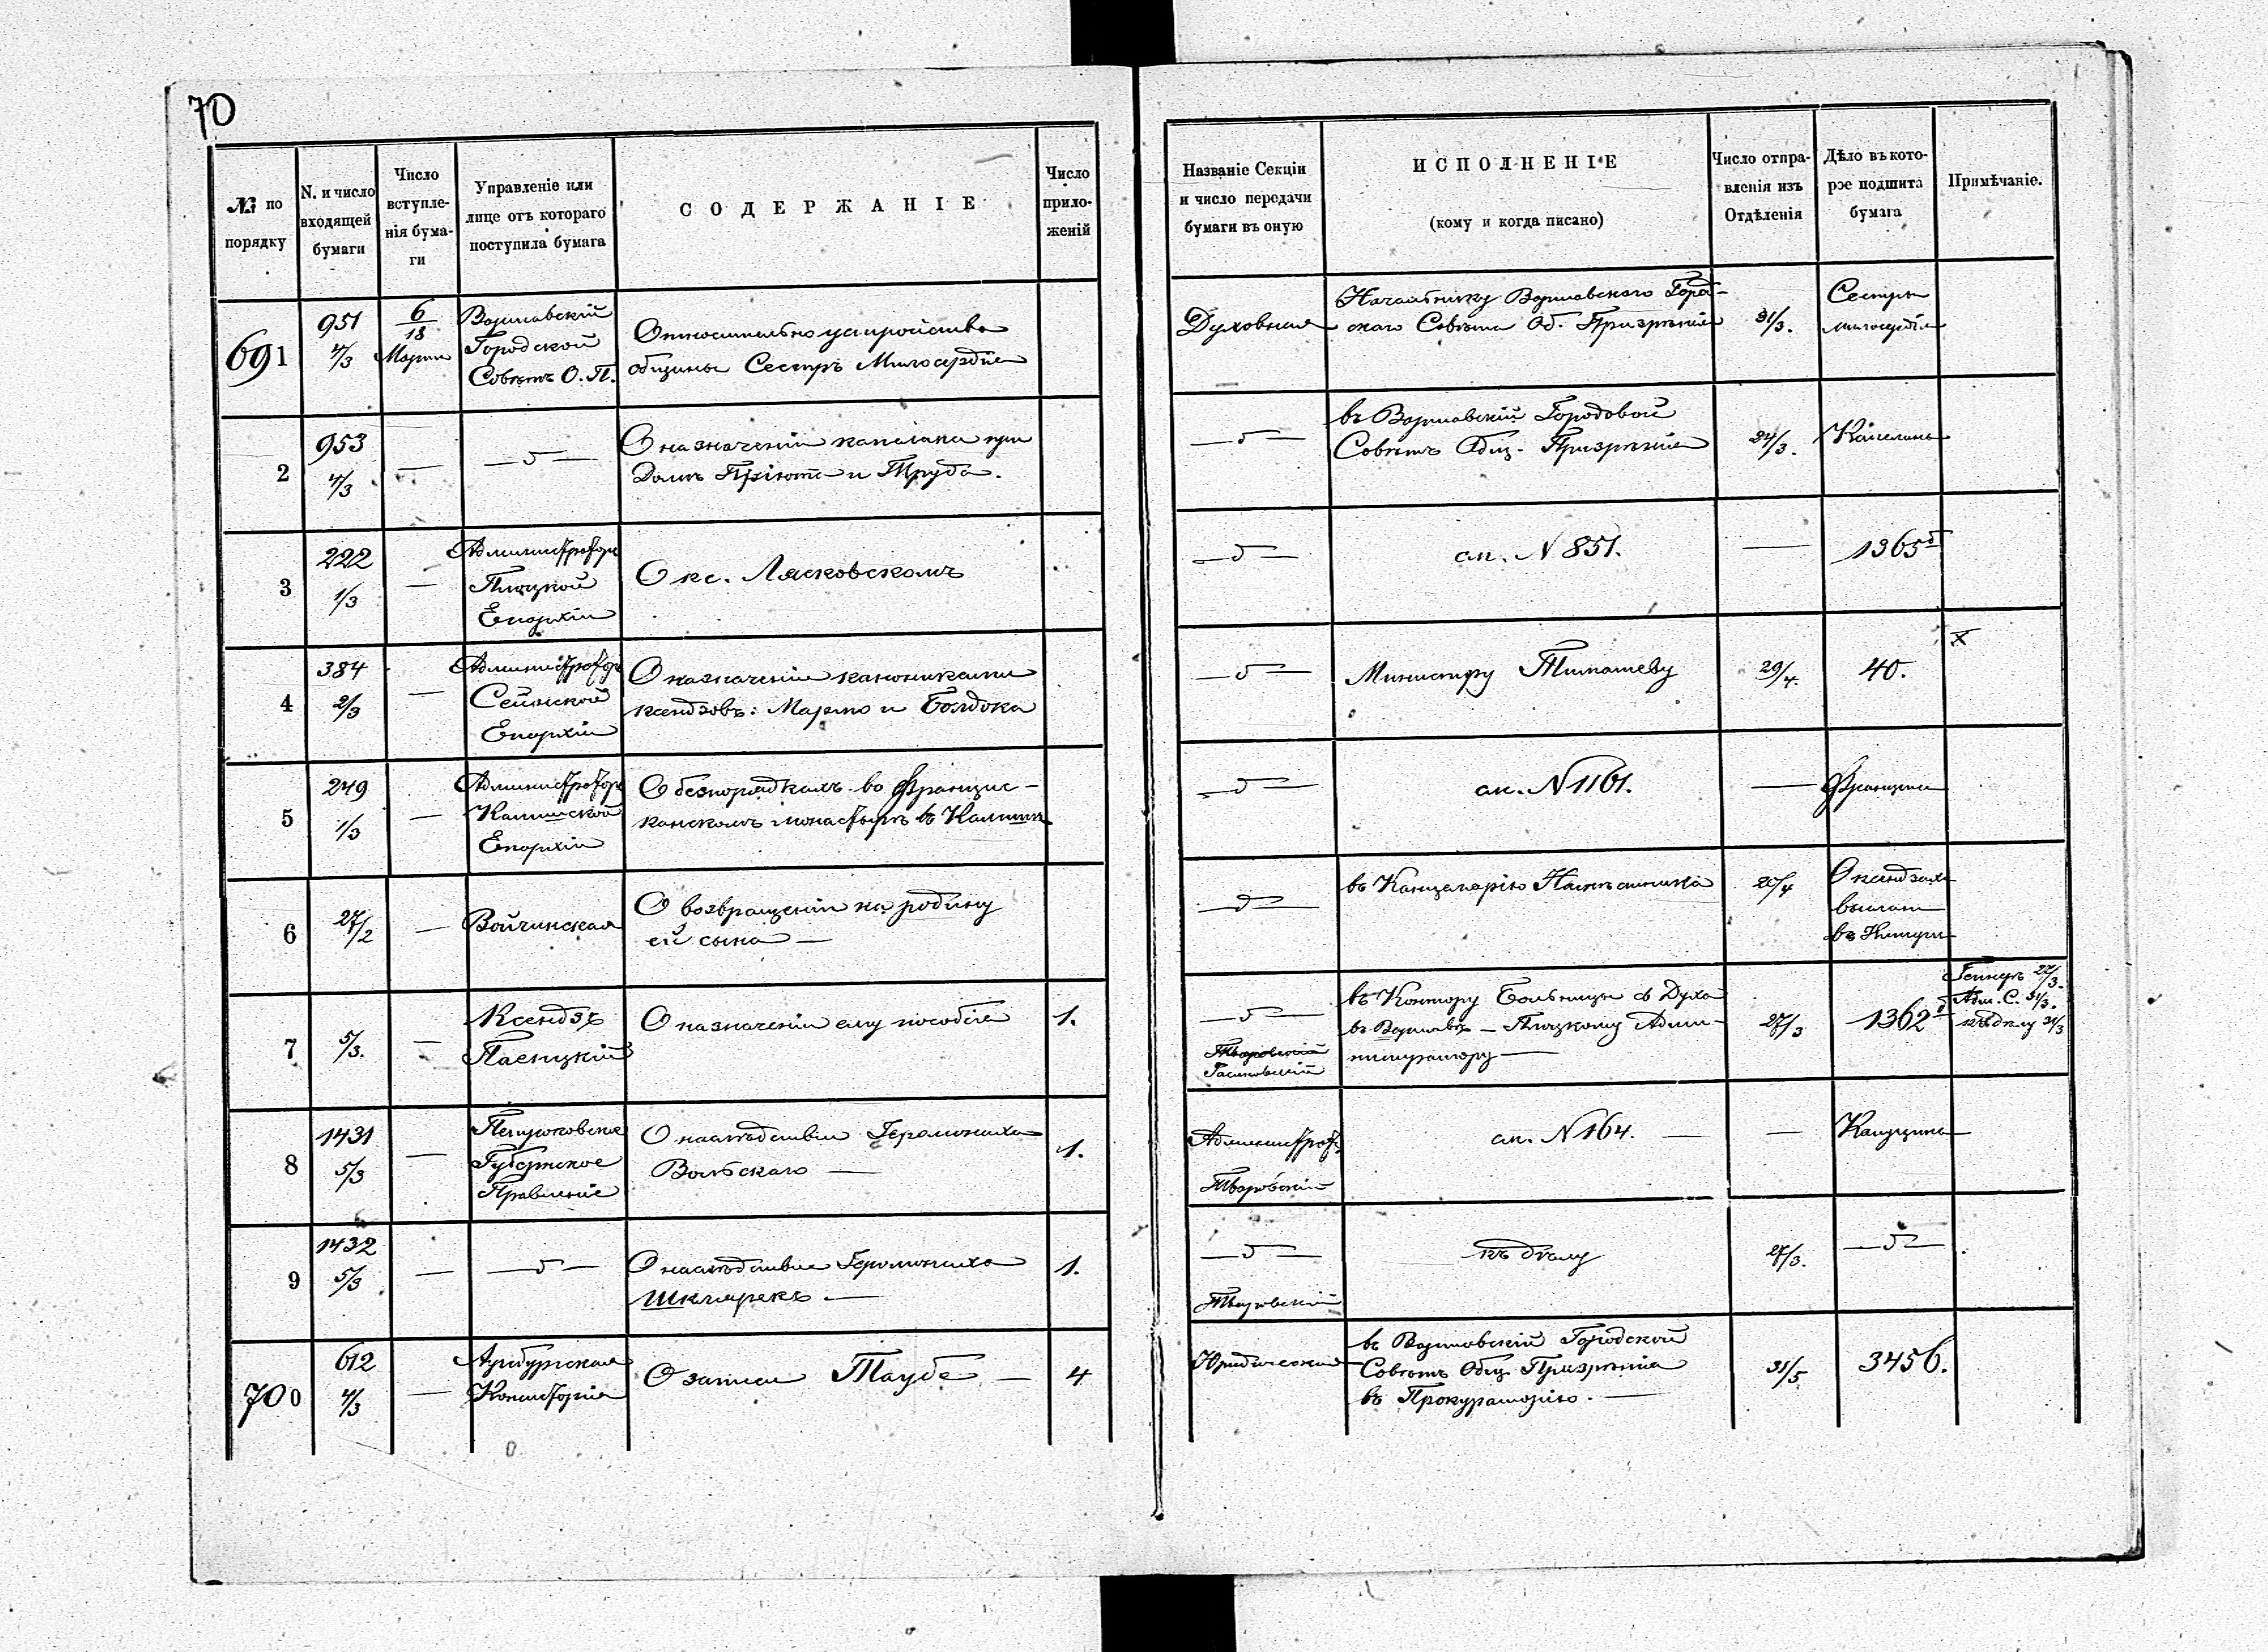 70
№ по порядку
N. и число входящей бумаги
Число вступленія бумаги
Управленіе или лице отъ котораго поступила бумага
СОДЕРЖАНІЕ
Число приложеній
Названіе Секціи и число передачи бумаги въ оную
ИСПОЛНЕНІЕ
(кому и когда писано)
Число отправленія изъ Отдѣленія
Дѣло въ которое подшита бумага
Примѣчаніе.
691
951
4/3
6/18
Марта
Варшавскій
Городской
Совѣтъ О. П.
Относительно устройства
общины Сестръ Милосердія
Духовная
Начальнику Варшавскаго Город-
скаго Совѣта Об. Призрѣнія
31/3.
Сестры
милосердія
2
953
4/3
—
— б —
О назначеніи капелана при
Домѣ Пріюта и Труда.
— б —
въ Варшавскій Городовой
Совѣтъ Общ. Призрѣнія
24/3.
Капеланы
3
222
1/3
—
Администраторъ
Плоцкой
Епархіи
О кс. Лясковскомъ
— б —
сп. N 851.
—
1365 б
4
384
2/3
—
Администраторъ
Сейнской
Епархіи
О назначеніи канониками
ксендзовъ: Марма и Болдока
— б —
Министру Тимашеву
29/4.
40.
X
5
249
1/3
—
Администраторъ
Калишской
Епархіи
О безпорядкахъ во Францис-
канскомъ монастырѣ въ Калишѣ
— б —
сп. N 1161.
—
Францишк
6
27/2
—
Войчинская
О возвращеніи на родину
ей сына —
— б —
въ Канцелярію Намѣстника
20/4
О ксендзахъ
высланн
въ Имперію
7
5/3.
—
Ксендзъ
О назначеніи ему пособія
1.
— б —
въ Контору Больницы св Духа
въ Варшавѣ — Плоцкому Адми-
нистратору —
27/3
1362 б
Адм. С. 31/3.
къ дѣлу 31/3
8
1431
5/3
—
Петроковское
Губернское
Правленіе
О наслѣдствѣ Іеромонаха
Вольскаго —
1.
Администрат.
Творовскій
сп. N 164. —
—
Капуцины
9
1432
5/3
—
— б —
О наслѣдствѣ Іеромонаха
Шкларекъ. —
1.
— б —
Творовскій
къ дѣлу
27/3.
— б —
700
612
4/3
—
Аугсбургская
Консисторія
О записи Таубе —
4
Юридическая
въ Варшавскій Городской
Совѣтъ Общ. Призрѣнія
въ Прокураторію. —
31/5
3456.